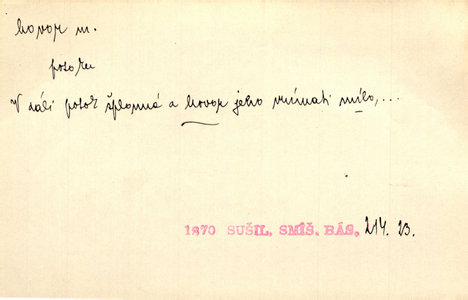 hovor m.
potoka
V dáli potok šplouná a hovor jeho vnímati mílo,...
1870 SUŠIL, SMÍŠ. BÁS, 214. 23.